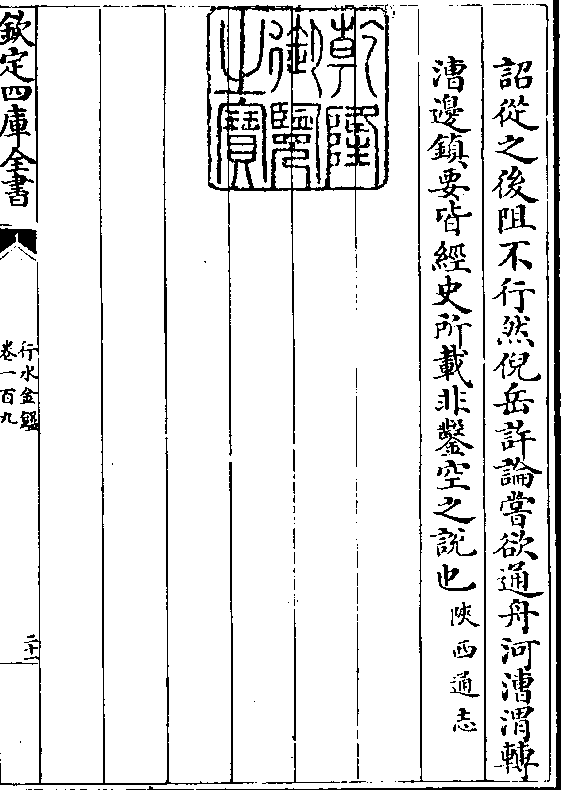 詔從之後阻不行然倪岳許論嘗欲通舟河漕渭轉
漕邊鎮要皆經史所載非鑿空之說也陜西通志
乾隆御覽之寶
欽定四庫全書
行水金鑑
卷一百九
二十一